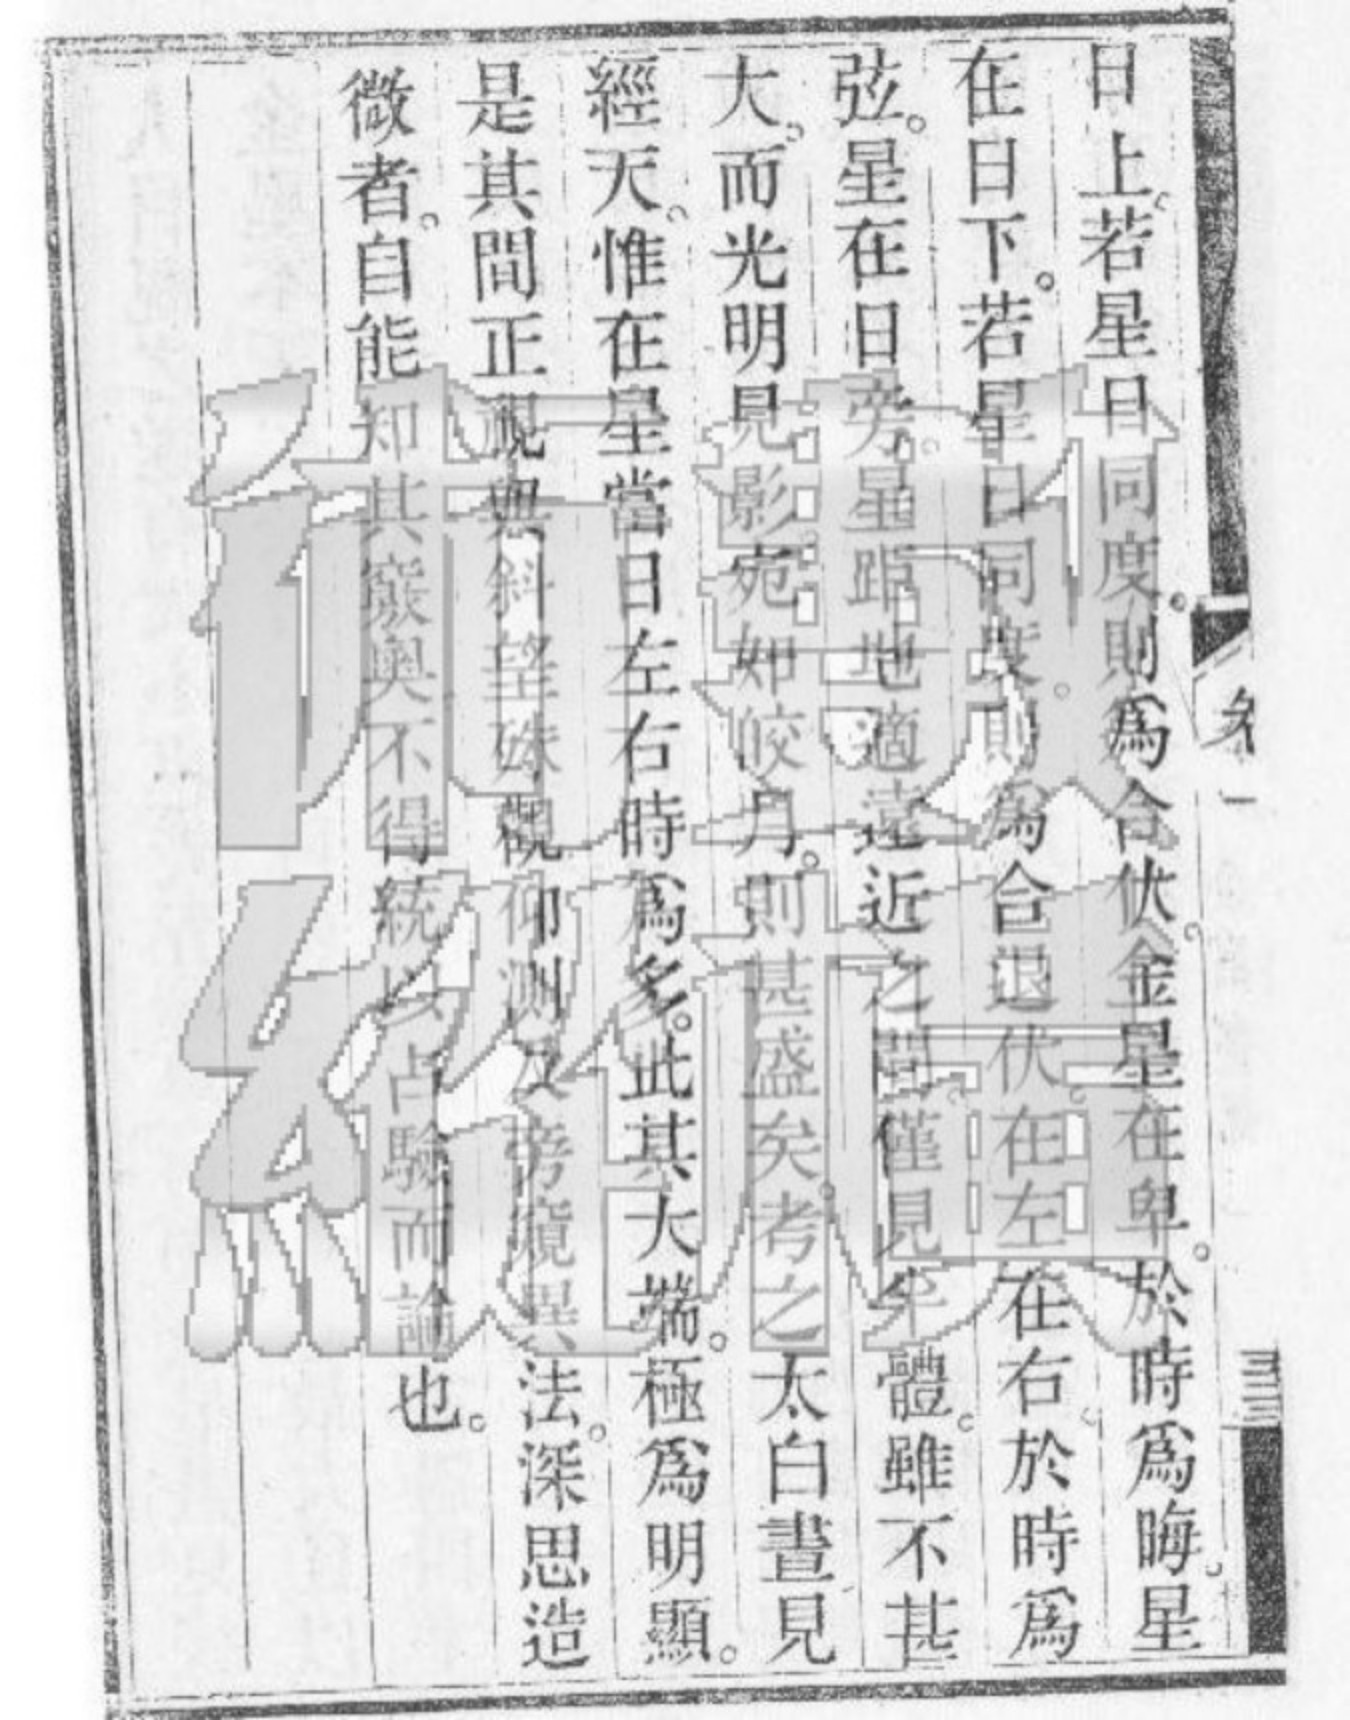 日上。若星日同度。則爲合伏。金星在卑。於時爲晦。星
在日下。若星日同度。則爲合退伏。在左在右。於時爲
弦。星在日旁。星距地適遠近之間。僅見半體。雖不甚
大。而光明見影。宛如皎月。則甚盛矣。考之太白晝見
經天。惟在星當日左右時爲多。此其大端。極爲明顯。
是其間正視與斜望殊觀仰測及旁窺異法。深思造
微者。自能知其窾奥不得統以占驗而論也。
卷一
三